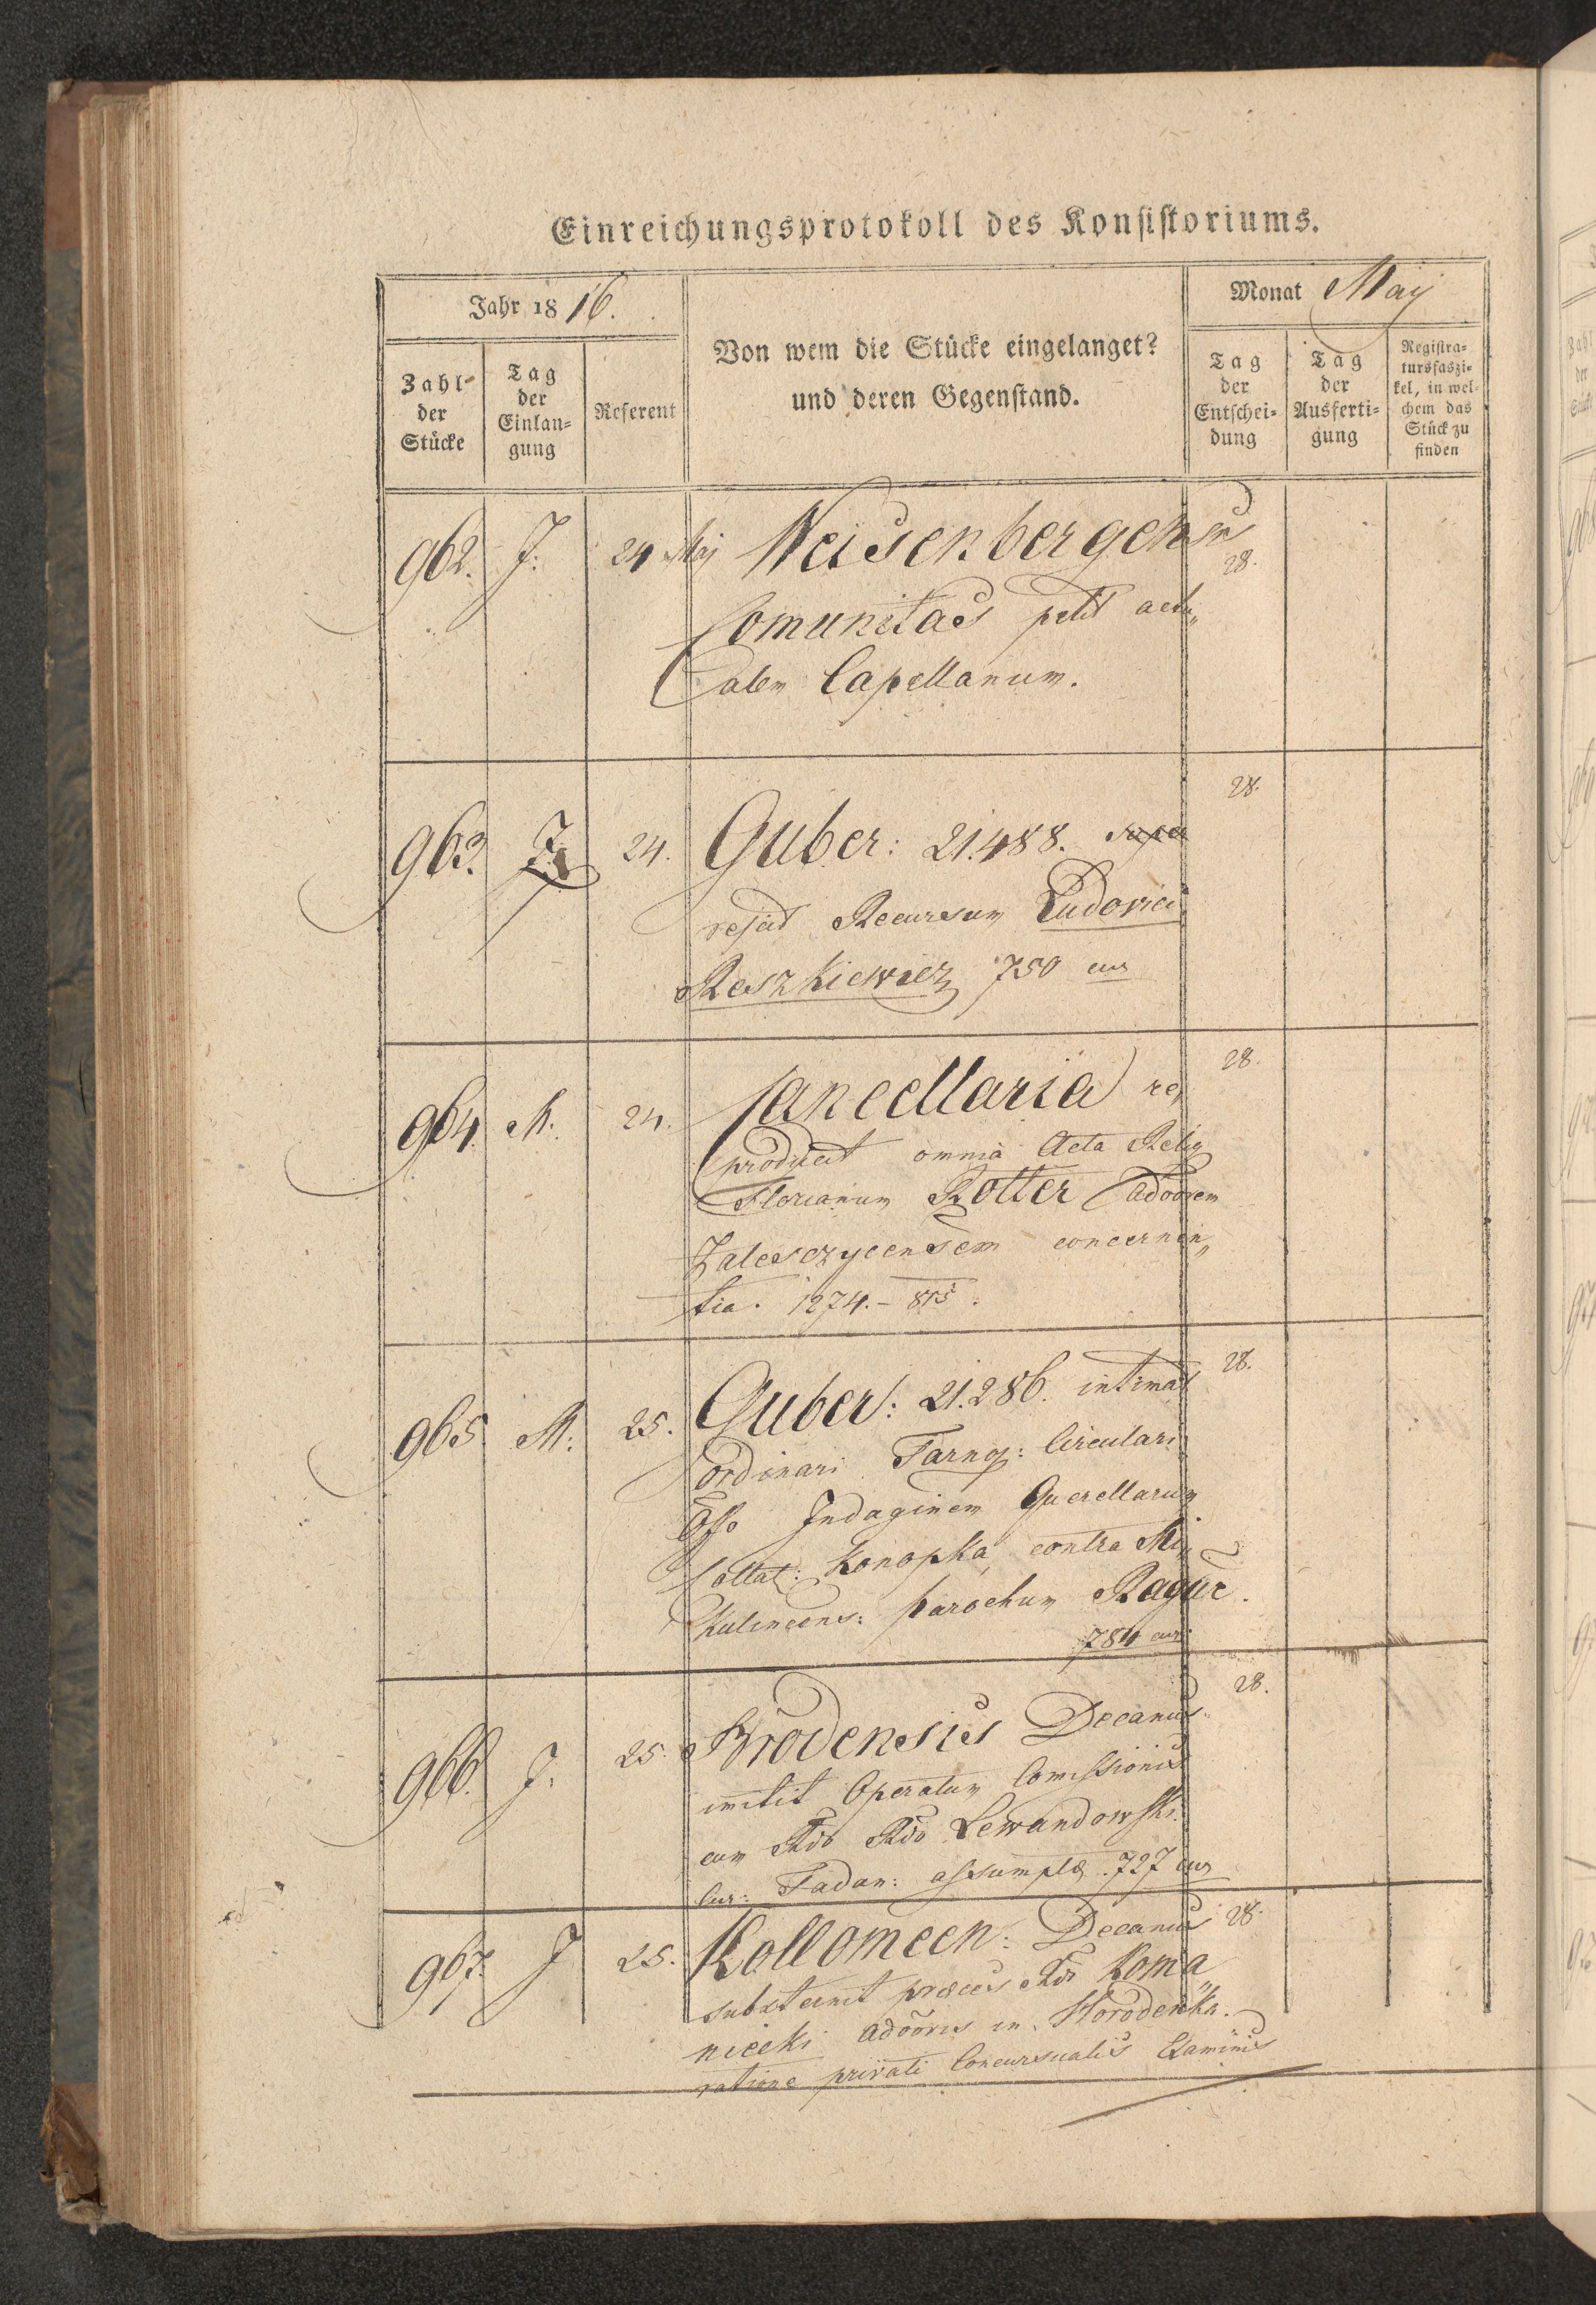 Einreichungsprotokoll des Konsistoriums.
Jahr 1816.
Monat Maij
Zahl der Stücke
Tag der Einlangung
Referent
Von wem die Stücke eingelanget?
und deren Gegenstand.
Tag der Entscheidung
Tag der Ausfertigung
Registratursfaszikel, in welchem das Stück zu finden
962. J. 24 Maj Weisenbergensis 28.
Comunitas petit actu„
alem Capellanum.
963. J. 24. Guber: 21.488. 28.
rejcit Recursum Ludovici
Reszkiewicz 750 cur
964. M. 24. Cancellaria re„ 28.
producit omnia Acta Relig
Florianum Kotter adōōrem
Zalesczycensem concernen„
tia. 1274. - 815.
965. M: 25. Guber: 21.286. intimat 28.
ordinari Tarnop: Circulari
Offo Indaginem Querellarum
Collat: Konopka contra Mi„
kulincens: parochum Ragur.
784 cur:
966. J. 25. Brodensis Decanus 28.
im̄itit Operatum Com̄issionis
cum Rdo Lewandowski
Cur: Tadan: assumptæ 727 cur
967. J 25. Kollomeen: Decanus 28.
substernit preces Rdi Roma
nicki adōōris in Horodenka.
ratione privati Concursualis Examinis